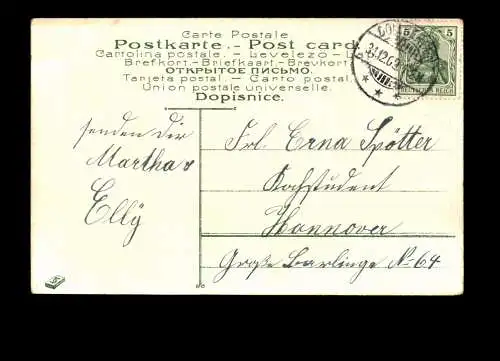 Carte Postale
Postkarte.- Post card.
Cartolina postale. - Levelező-L
Brefkort.-Briefkaart.-Brevkort
ОТКРЫТОЕ ПИСЬМО.
Tarjeta postal.- Carta postal.
Union postale universelle.
Dopisnice.
5 5
DEUTSCHES REICH
senden dir
Martha u
Elly
Frl. Erna Spötter
Kochstudent
Hannover
Große Barlinge No 64